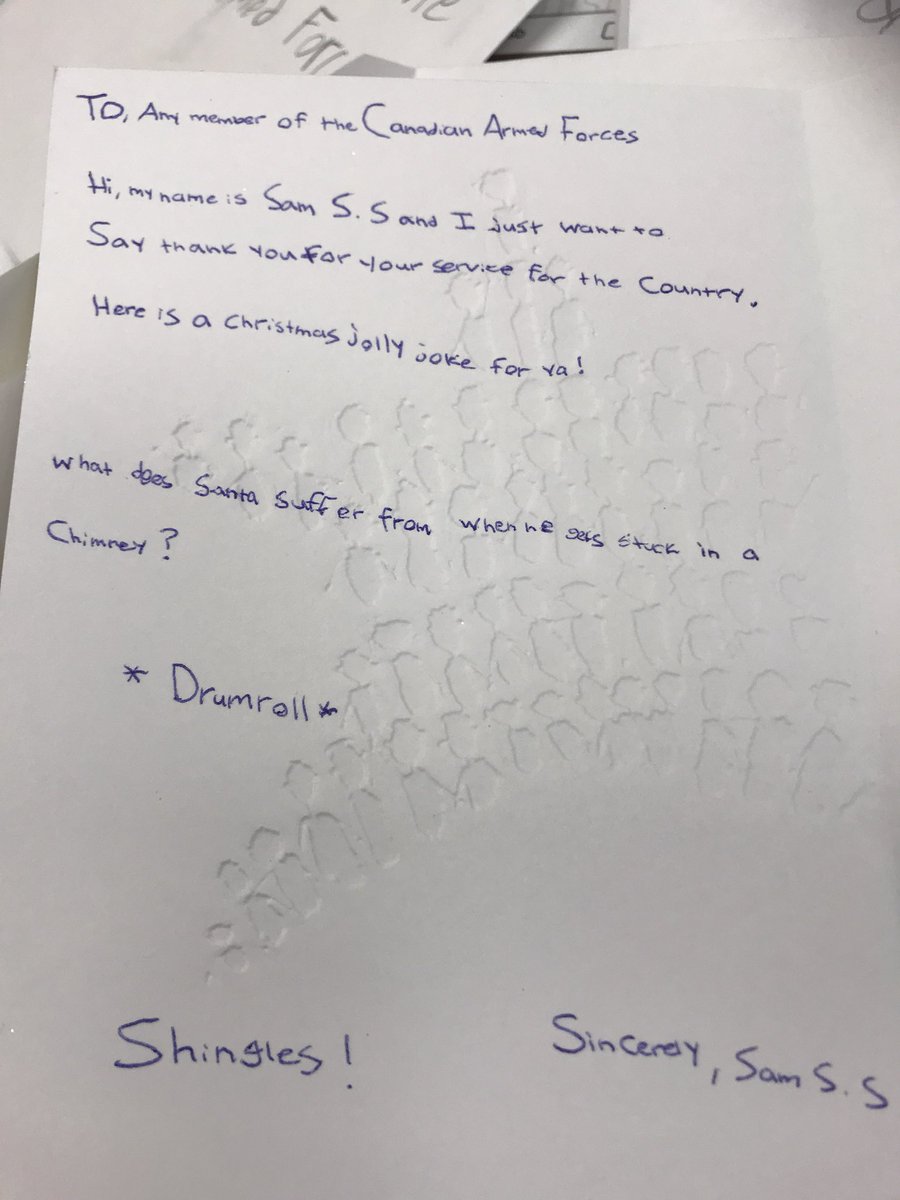 TO, Any member of the Canadian Armed Forces
Hi, my name is Sam S.S and I just want to
Say thank you for your service for the Country.
Here is a Christmas jolly joke for ya!
What does Santa suffer from when he gets stuck in a
Chimney?
* Drumroll *
Shingles!
Sincerely, Sam S.S